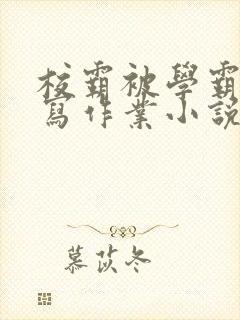 校霸被學霸
寫作業小說
慕苡冬